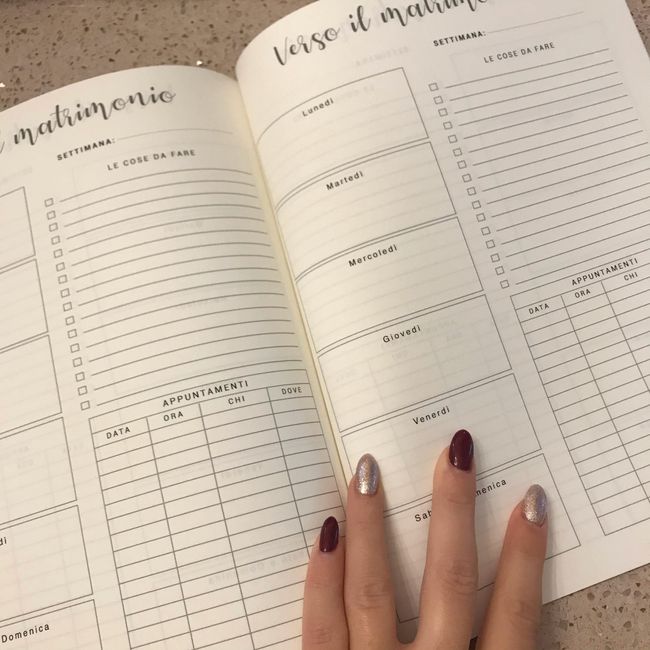 matrimonio
SETTIMANA:
LE COSE DA FARE
APPUNTAMENTI
DATA ORA CHI DOVE
Domenica
Verso il matrimo
SETTIMANA:
LE COSE DA FARE
Lunedì
Martedì
Mercoledì
Giovedì
Venerdì
APPUNTAMENTI
DATA ORA CHI